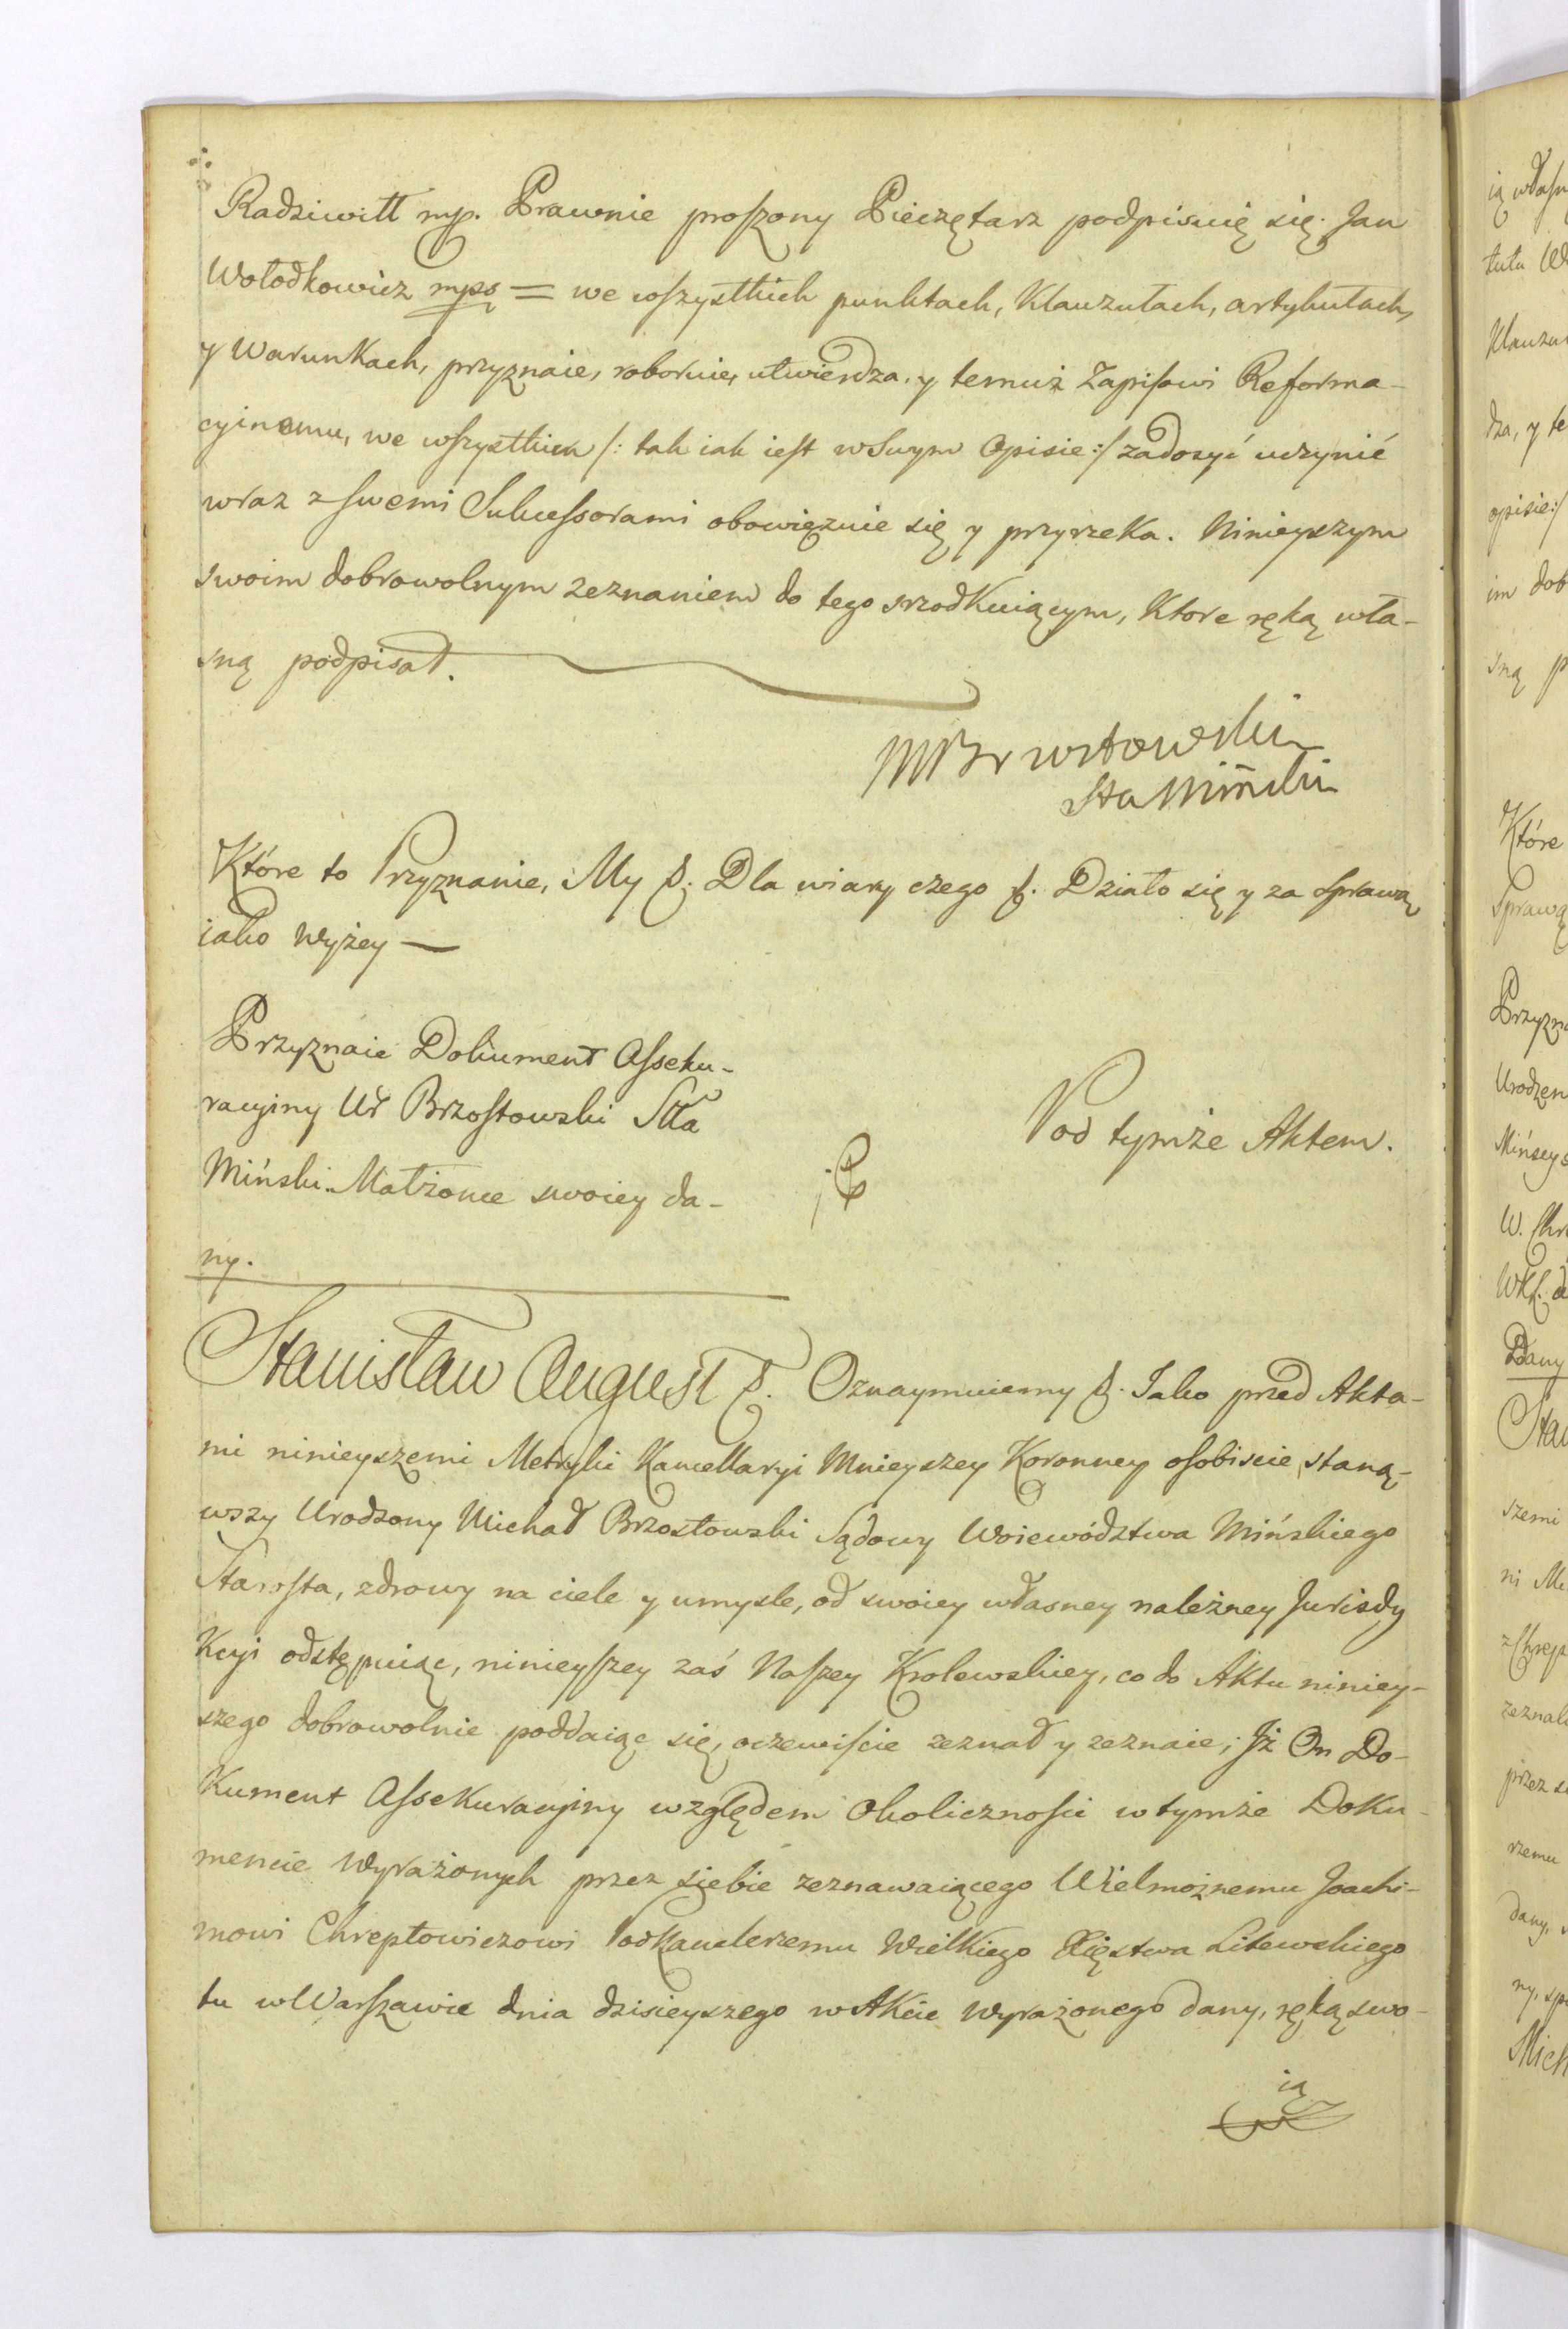 Radziwiłł mp. Prawnie proszony Pieczętarz podpisuię się. Jan
Wołodkowicz mpo = we wszystkich punktach, Klauzułach, artykułach,
y Warunkach, przyznaie, roboruie, utwierdza, y temuż Zapisowi Reforma-
cyinemu, we wszystkiem /: tak iak iest w swym Opisie :/ zadosyć uczynić
wraz z swemi Sukcessorami obowięzuie się y przyrzeka. Ninieyszym
swoim dobrowolnym zeznaniem do tego srzodkuiącym, Ktore ręką wła-
sną podpisał.
MBrzostowski
Sta Miński
Które to Przyznanie, My &. Dla wiary czego &. Działo się y za sprawą
iako wyżey —
Przyznaie Dokument Asseku-
racyiny Ur Brzostowski Stta
Miński Małżonce swoiey da-
ny.
Pod tymże Aktem.
Stanisław August &. Oznaymuiemy &. Iako przed Akta-
mi ninieyszemi Metryki Kancellaryi Mnieyszey Koronney osobiscie staną-
wszy Urodzony Michał Brzostowski Sądowy Woiewództwa Mińskiego
Starosta, zdrowy na ciele y umysle, od swoiey własney należney Jurisdy
Kcyi odstępuiąc, ninieyszey zaś Naszey Krolewskiey, co do Aktu niniey-
szego dobrowolnie poddaiąc się, oczewiscie zeznał y zeznaie; Jż On Do-
Kument Assekuracyiny względem Okolicznosci w tymże Doku-
mencie Wyrażonych przez siebie zeznawaiącego Wielmożnemu Joachi-
mowi Chreptowiczowi Podkanclerzemu Wielkiego Xięstwa Litewskiego
tu w Warszawie dnia dzisieyszego w AKcie Wyrażonego dany, ręką swo-
ią